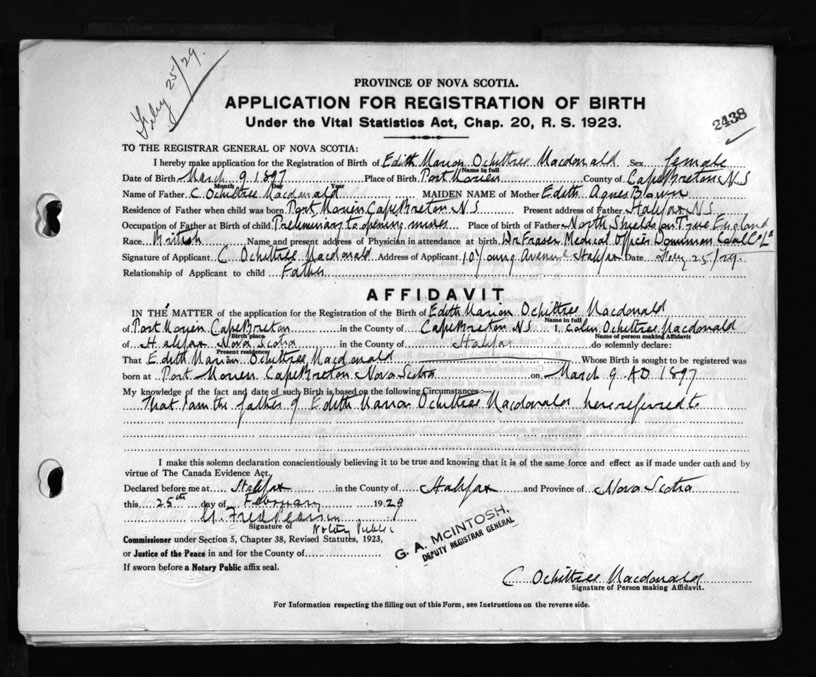 Feby 25/29.
PROVINCE OF NOVA SCOTIA.
APPLICATION FOR REGISTRATION OF BIRTH
Under the Vital Statistics Act, Chap. 20, R. S. 1923.
2438
TO THE REGISTRAR GENERAL OF NOVA SCOTIA:
I hereby make application for the Registration of Birth of Edith Marion Ochiltree Macdonald Sex female
Name in full
Date of Birth March 9 1897 Place of Birth Port Morien County of Cape Breton N S
Month Day Year
Name of Father C Ochiltree Macdonald MAIDEN NAME of Mother Edith Agnes Brown
Residence of Father when child was born Port Morien Cape Breton N S Present address of Father Halifax N S
Occupation of Father at Birth of child Preliminary to opening mines Place of birth of Father North Shields on Tyne England
Race British Name and present address of Physician in attendance at birth Dr Fraser Medical Officer Dominion Coal Co Ld
Signature of Applicant C Ochiltree Macdonald Address of Applicant 10 Young Avenue Halifax Date Feby 25/29.
Relationship of Applicant to child Father
AFFIDAVIT
IN THE MATTER of the application for the Registration of the Birth of Edith Marion Ochiltree Macdonald
Name in full
of Port Morien Cape Breton in the County of Cape Breton N S I, Colin Ochiltree Macdonald
Birth place Name of person making Affidavit
of Halifax Nova Scotia in the County of Halifax do solemnly declare:
Present residence
That Edith Marion Ochiltree Macdonald Whose Birth is sought to be registered was
born at Port Morien Cape Breton Nova Scotia on March 9 AD 1897
My knowledge of the fact and date of such Birth is based on the following Circumstances:—
That I am the father of Edith Marion Ochiltree Macdonald here referred to
I make this solemn declaration conscientiously believing it to be true and knowing that it is of the same force and effect as if made under oath and by
virtue of The Canada Evidence Act.
Declared before me at Halifax in the County of Halifax and Province of Nova Scotia
this 25th day of February 1929
Signature of Notary Public
Commissioner under Section 5, Chapter 38, Revised Statutes, 1923,
or Justice of the Peace in and for the County of
If sworn before a Notary Public affix seal.
G. A. MCINTOSH,
DEPUTY REGISTRAR GENERAL
C Ochiltree Macdonald
Signature of Person making Affidavit.
For Information respecting the filling out of this Form, see Instructions on the reverse side.